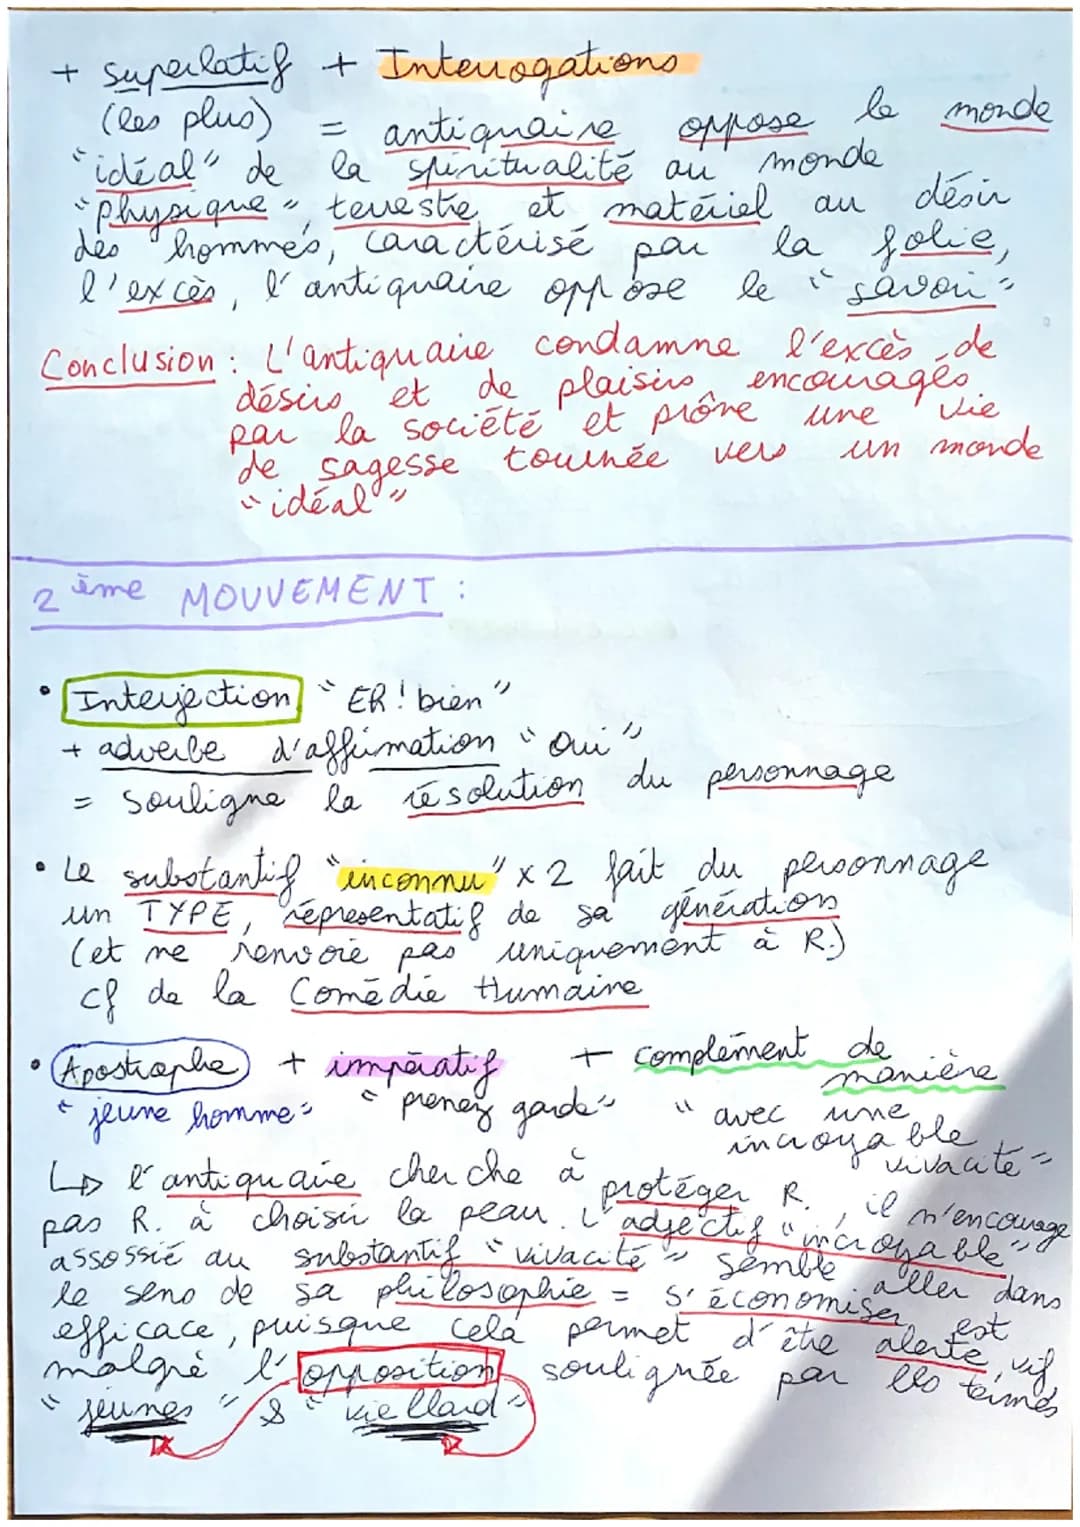 + superlatif + Interrogations
(les plus) = antiquaire oppose le monde
"idéal" de la spiritualité au monde
"physique", terrestre et matériel au désir
des hommes, caractérisé par la folie,
l'excès, l'antiquaire oppose le "savoir"
Conclusion : L'antiquaire condamne l'excès de
désirs et de plaisirs encouragés
par la société et prône une vie
de sagesse tournée vers un monde
"idéal"
2ème MOUVEMENT :
• Interjection "ER! bien"
+ adverbe d'affirmation "oui"
= souligne la résolution du personnage
• Le substantif "inconnu" x2 fait du personnage
un TYPE, réprésentatif de sa génération
(et ne renvoie pas uniquement à R.)
cf de la Comédie Humaine
• Apostrophe + impératif + complément de manière
"jeune homme" "prenez garde" "avec une incroyable vivacité"
↳ l'antiquaire cherche à protéger R., il n'encourage
pas R. à choisir la peau. L'adjectif "incroyable"
assossié au substantif "vivacité" semble aller dans
le sens de sa philosophie = s'économiser est
efficace, puisque cela permet d'être alerte, vif
malgré l'opposition soulignée par les termes
"jeunes" & "vieillard"